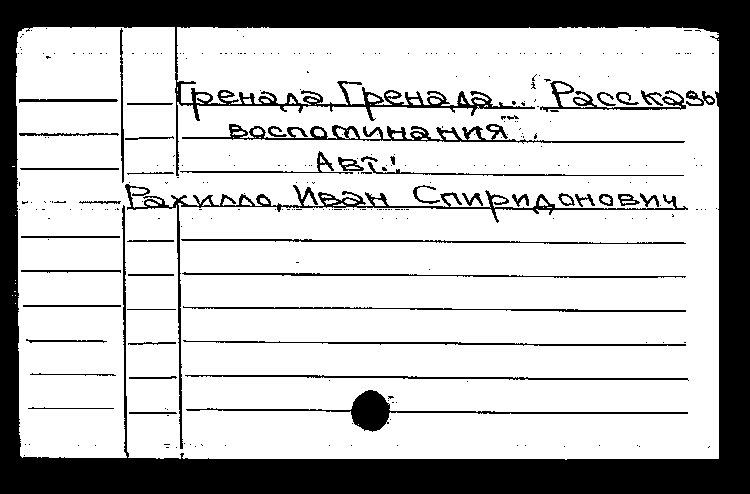 Гренада, Гренада... Рассказы
воспоминания
Авт.:
Рахилло, Иван Спиридонович